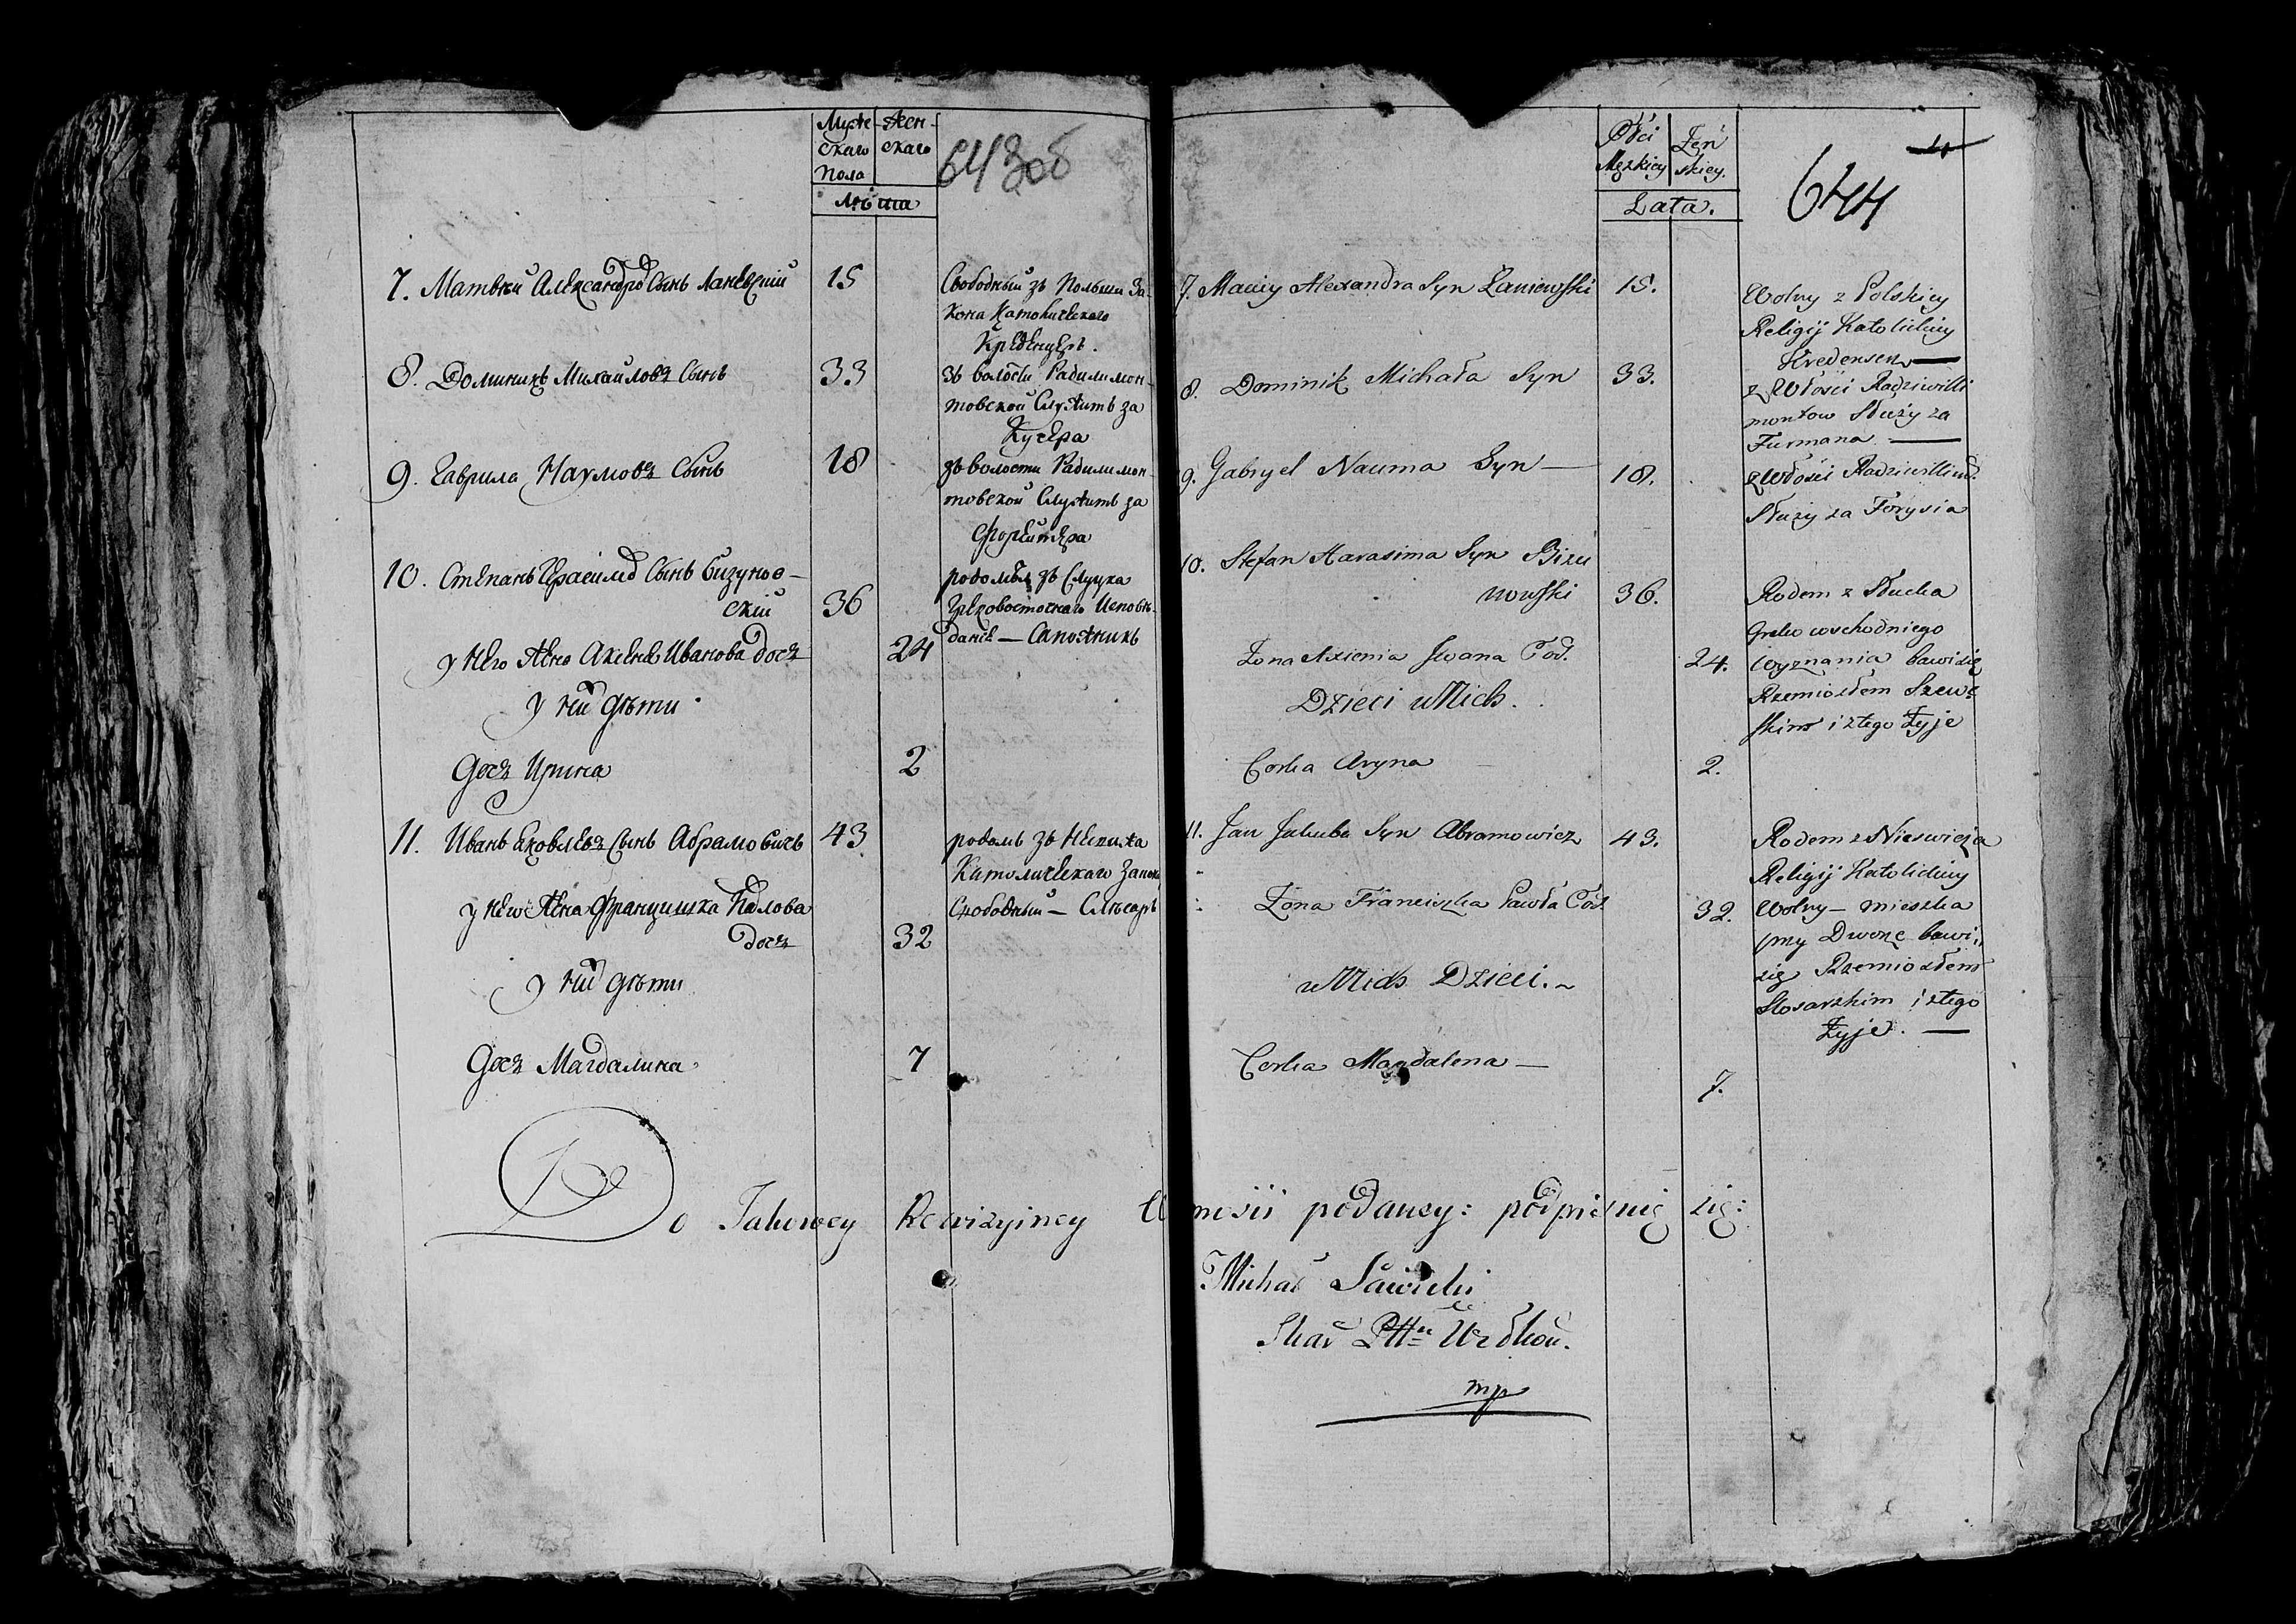 Муже- Жен-
скаго скаго
пола
Лѣта
643 об
7. Матвей Александров Сынъ Ланевский 15
Свободный зъ Польши За-
кона Католическаго
Креденцеръ.
8. Доминикъ Михайловъ Сынъ 33
зъ волости Радилимон-
товской Служить за
Кучера
9. Гаврила Наумовъ Сынъ 18
зъ волости Радилимон-
товской Служить за
Форейтера
10. Степанъ Герасимов Сынъ Бизунов-
ский 36
родомъ зъ Слуцка
Грековосточнаго Исповѣ-
дание — Сапожникъ
у него Жена Аксеня Иванова Дочъ 24
у ний дѣти
Дочъ Ирина 2
11. Иванъ Яковлевъ Сынъ Абрамовичъ 43
родомъ зъ Несвижа
Католическаго Закона
Свободный — Слѣсаръ
у него Жена Францишка Павлова
дочъ 32
у ний дѣти
Дочъ Магдалина 7
Płci Żeń
Męzkiey skiey.
Lata.
644
7. Maciey Alexandra Syn Łaniewski 15.
Wolny z Polskiey
Religij Katolickiey
Kredensen —
8. Dominik Michała Syn 33.
z Włości Radziwilli
montow Służy za
Furmana —
9. Gabryel Nauma Syn — 18.
z Włości Radziwillim.
Służy za Forysia
10. Stefan Harasima Syn Bizu
nowski 36.
Rodem z Słucka
Greko wschodniego
Wyznania bawi się
Rzemiosłem Szewc
skim i z tego Żyje
Żona Axienia Jwana Cod. 24.
Dzieci u Nich.
Corka Aryna 2.
11. Jan Jakuba Syn Abramowicz 43.
Rodem z Nieswieża
Religij Katolickiey
Wolny — mieszka
przy Dworze bawi
się Rzemiosłem
Slosarskim i z tego
Żyje. —
Żona Franciszka Pawła Cod. 32.
u Nich Dzieci. ~
Corka Magdalena — 7.
Do Takowey Rewizyiney podaney: podpisuię się:
Michał Sawicki
mp